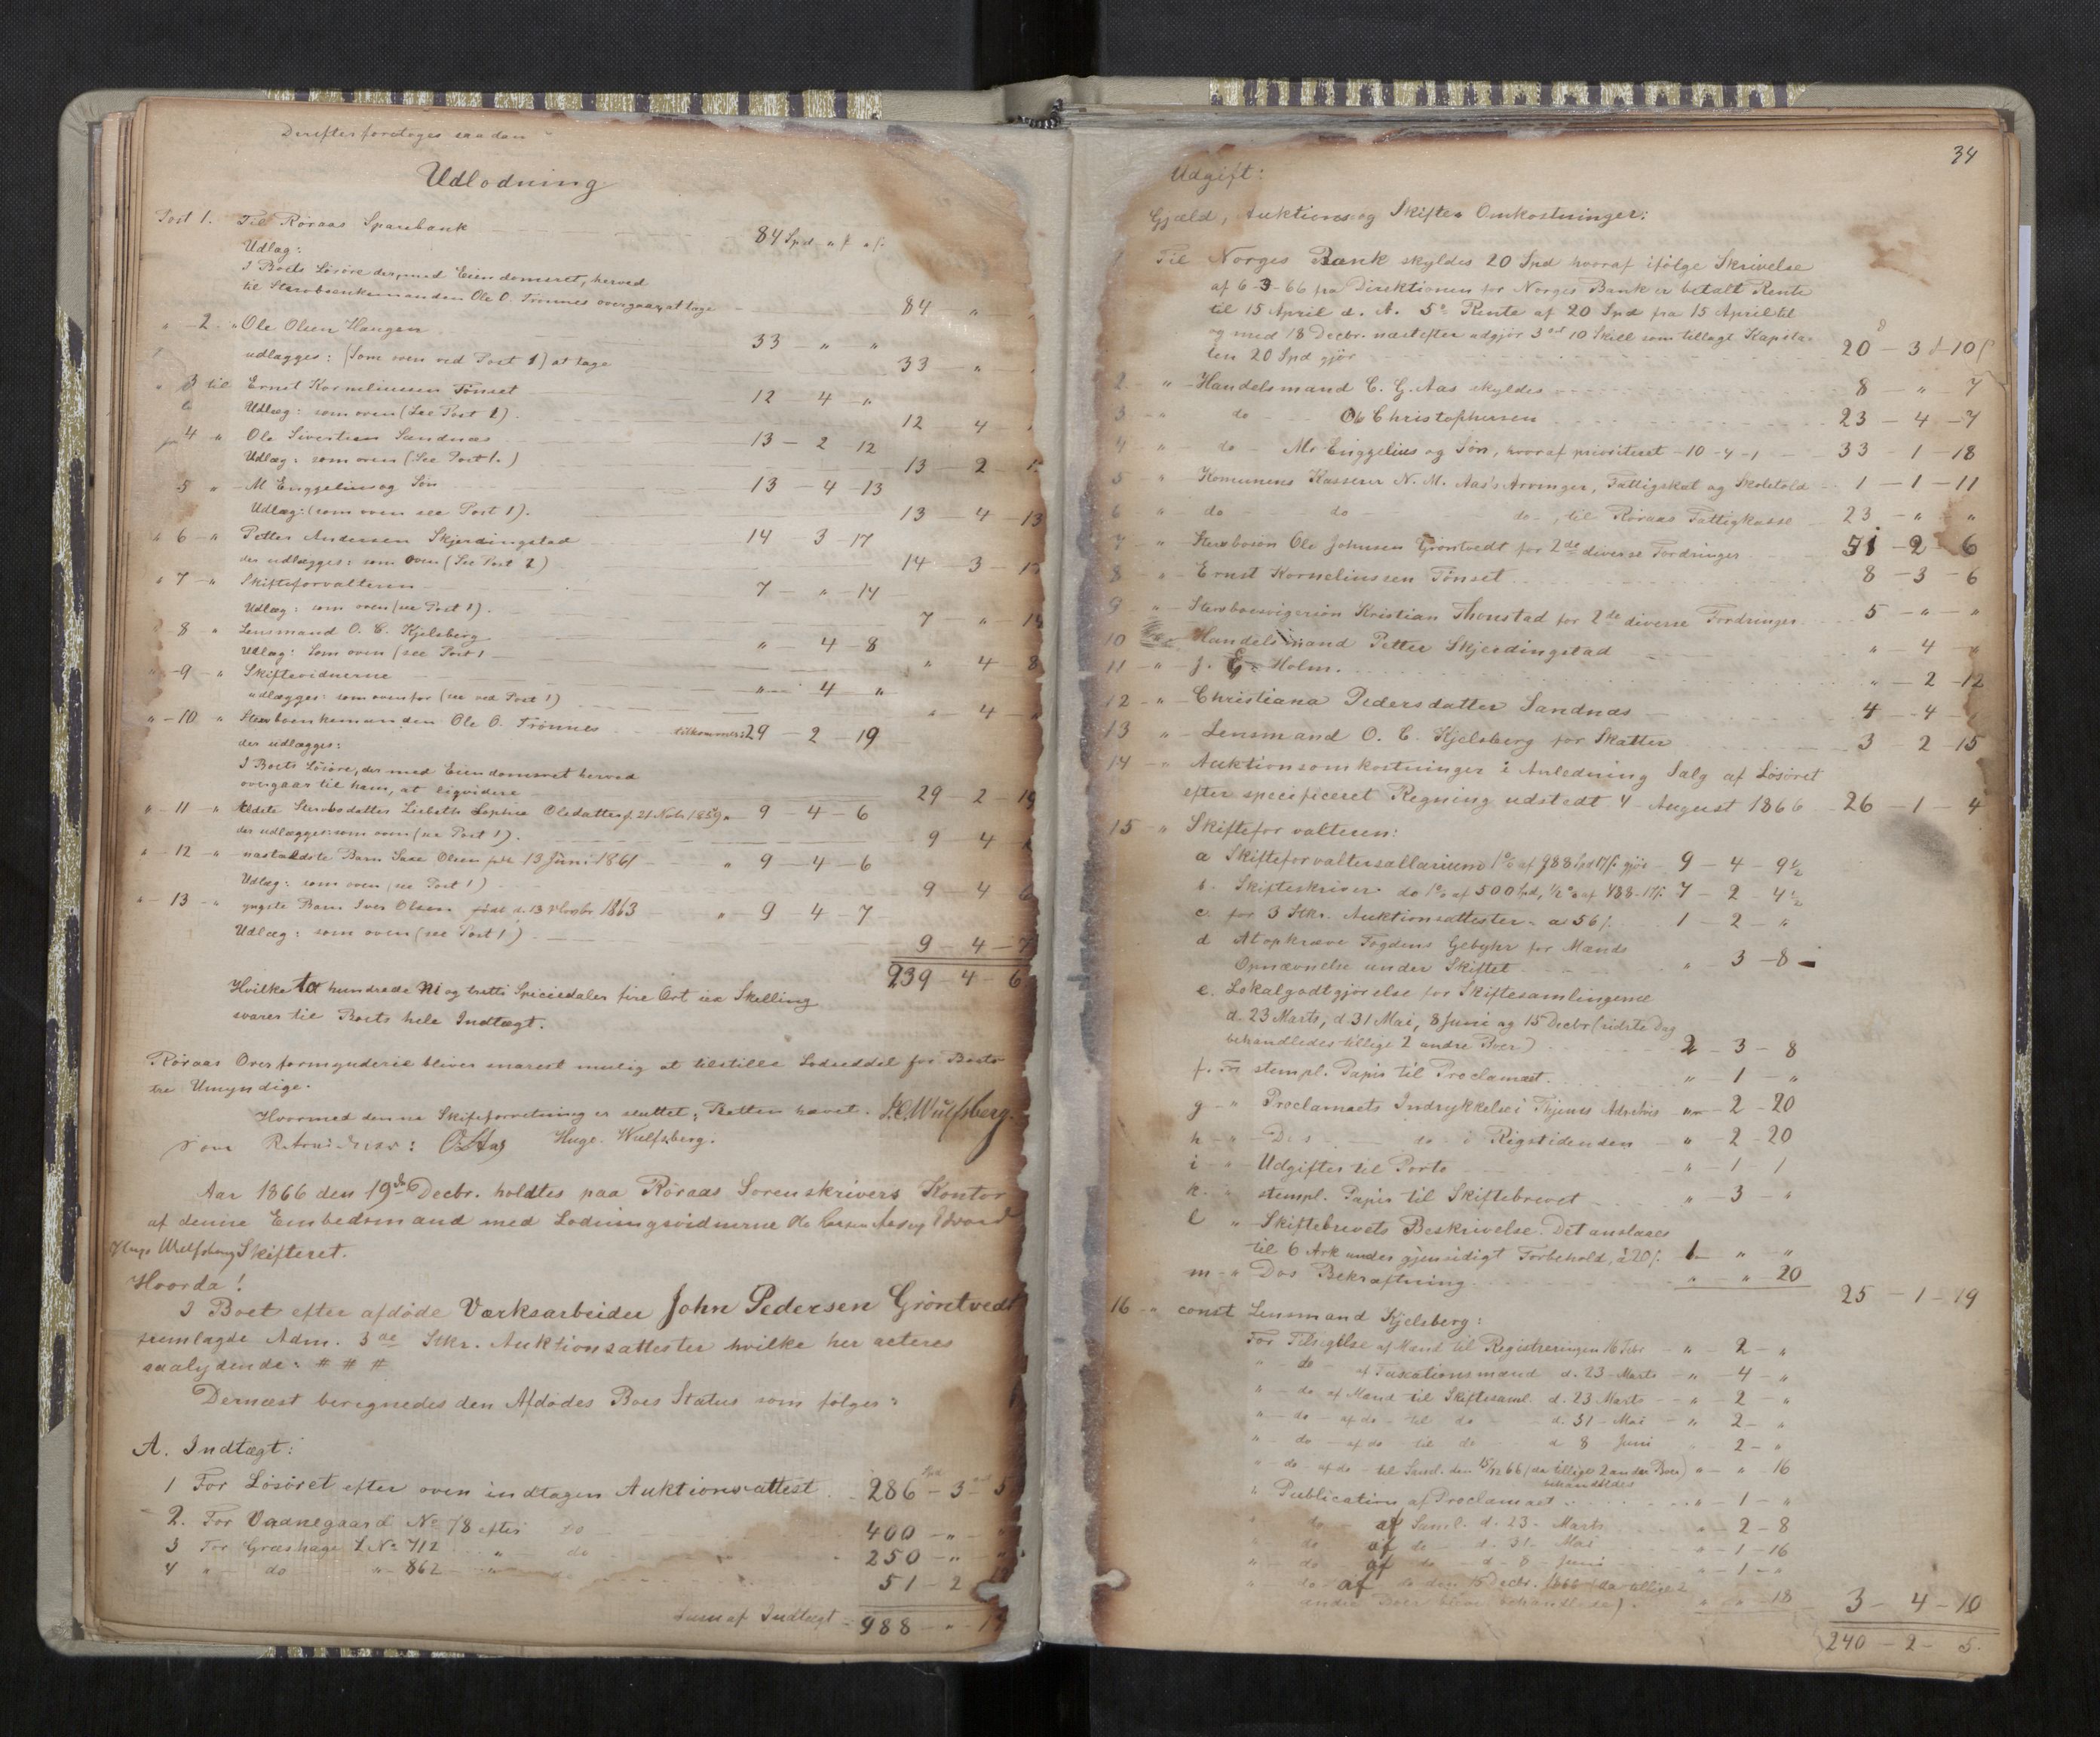 Derefter foretoges saadan
Udlodning
Post 1. Til Røraas Sparebank 84 Spd " ß " ß.
Udlæg:
I Boets Løsøre der, med Eiendomsret, herved
til Stervboenkemanden Ole O. Trønnes overgaar, at tage 84 "
" 2. " Ole Olsen Haugen 33 " "
udlægges: (Som oven ved Post 1) at tage 33 "
" 3 til Ernst Korneliussen Tønset 12 - 4 - "
Udlæg: som oven (See Post 1). 12 4
4 " Ole Sivertsen Sandnæs 13 - 2 12
Udlæg: som oven (See Post 1.) 13 - 2
5 " M Enggelius og Søn 13 - 4 - 13
Udlæg: (som oven see Post 1). 13 - 4 - 13
" 6 - " Petter Andersen Skjerdingstad 14 3 - 17
der udlægges: som oven (See Post 1) 14 - 3 - 17
" 7 - " Skifteforvalteren 7 - " - 14
Udlæg: som oven (see Post 1). 7 - " - 14
8 - " Lensmand O. C. Kjelsberg " - 4 - 8
Udlæg: Som oven (see Post 1 " 4 - 8
" - 9 - " Skiftevidnerne " - 4 - "
udlægges: som ovenfor (see ved Post 1) " - 4 - "
" - 10 " Stervboenkemanden Ole O. Trønnes tilkommer: 29 - 2 - 19
der udlægges:
I Boets Løsøre, der med Eiendomsret herved
overgaar til ham, at liqvidere 29 - 2 - 19
" - 11 - " Ældste Stervbodatter Lisbeth Sophie Olsdatter f. 21 Novb. 1859 " 9 - 4 - 6
der udlægges: som oven (see Post 1). 9 - 4
" - 12 - " næstældste Barn Saxe Olsen født 13 Juni 1861 " 9 - 4 - 6
Udlæg: som oven (see Post 1) 9 - 4 6
" - 13 - " yngste Barn Iver Olsen født d. 13 Novbr 1863 " 9 - 4 - 7
Udlæg: som oven (see Post 1) 9 - 4 - 7
239 - 4 - 6
Hvilke to hundrede ni og tretti Speciesdaler fire Ort sex Skelling
svarer til Boets hele Indtægt.
Røraas Overformynderie bliver snarest mulig at tilstille Lodseddel for Boets
tre Umyndige.
Hvormed denne Skifteforretning er sluttet; Retten hævet. Wulfsberg.
Som Retsvidner: O. Aas Hugo Wulfsberg.
Aar 1866 den 19de Decbr. holdtes paa Røraas Sorenskrivers Kontor
af denne Embedsmand med Lodningsvidnerne Ole Larsen Aas og Edvard
Hugo Wulfsberg Skifteret.
Hvorda!
I Boet efter afdøde Værksarbeider John Pedersen Grøntvedt
fremlagde Adm. 3de Stkr. Auktionsattester hvilke her acteres
saalydende: # # #
Dernæst beregnedes den Afdødes Boes Status som følger:
A. Indtægt:
1 For Løsøret efter oven indtagen Auktionsattest 286 - 3 - 5
2. For Vaanegaard No 78 efter do 400 - " -
3 For Græshage L No 712 " do 250 - " -
4 " do " - 862 " do 51 - 2
Sum af Indtægt - 988 - " - 17
34
Udgift:
Gjæld, Auktions og Skifte Omkostninger:
1 Til Norges Bank skyldes 20 Spd hvoraf ifølge Skrivelse
af 6-3-66 fra Direktionen for Norges Bank er betalt Rente
til 15 April d. A. 5% Rente af 20 Spd fra 15 April til
og med 18 Decbr. næstefter udgjør 3 ort 10 Skill som tillagt Kapita-
len 20 Spd gjør 20 - 3 - 10 ß
2 - " - Handelsmand C. G. Aas skyldes 8 " - 7
3 - " do Ole Christophersen 23 - 4 - 7
4 " do M. Enggelius og Søn, hvoraf prioriteret - 10 - 4 - 1 33 - 1 - 18
5 - " Komunens Kasserer N. M. Aas's Arvinger, Fattigskat og Skoletold 1 - 1 - 11
6 " do do do, til Røraas Fattigkasse 23 - " - "
7 " Stervbosøn Ole Johnsen Grøntvedt for 2de diverse Fordringer 51 - 2 - 6
8 " - Ernst Korneliussen Tønset 8 - 3 - 6
9 " - Stervboesvigersøn Kristian Thonstad for 2de diverse Fordringer 5 - " - "
10 Handelsmand Petter Skjerdingstad " 4 - "
11 - " - J. E. Holm. " - 2 - 12
12 - " - Christiana Pedersdatter Sandnæs 4 - 4 -
13 " - Lensmand O. C. Kjelsberg for Skatter 3 - 2 - 15
14 - " Auktionsomkostninger i Anledning Salg af Løsøret
efter specificeret Regning udstedt 4 August 1866 26 - 1 - 4
15 - " Skifteforvalteren:
a Skifteforvaltersallarium 1% af 988 Spd 17 ß. gjør 9 - 4 - 9½
b. Skifteskriver do 1% af 500 Spd, ½% af 488 - 17 ß 7 - 2 - 4½
c. for 3 Stkr. Auktionsattester - a 56 ß. 1 - 2 - "
d At opkræve Fogdens Gebyhr for Mænds
Opnævnelse under Skiftet " - 3 - 8
e. Lokalgodtgjørelse for Skiftesamlingerne
d. 23 Marts, d. 31 Mai, 8 Juni og 15 Decbr (sidste Dag
behandledes tillige 2 andre Boer) 2 - 3 - 8
f. For stempl. Papir til Proclamaet " - 1 - "
g - " Proclamaets Indrykkelse i Thjems Adrebvis " - 2 - 20
h - " - D:s do i Rigstidenden " - 2 - 20
i - " Udgifter til Porto " - 1 1
k. " stempl. Papir til Skiftebrevet " - 3 - "
l " - Skiftebrevets Beskrivelse. Det anslaaes
til 6 Ark under gjensidigt Forbehold, à 20 ß. 1 " "
m - " Dos Bekræftning " " 20
25 - 1 - 19
16 - " const Lensmand Kjelsberg:
For Tilsigelse af Mænd til Registreringen 16 Febr " - 2 - "
" do af Taxationsmænd d. 23 - Marts " 4 - "
" - do af Mænd til Skiftesaml. d. 23 Marts " - 2 - "
" - do - af do - til do d. 31 - Mai " 2 - "
" - do - af do til do d 8 Juni 2 - "
" - do - af do - til Saml. den 15/12 66 (da tillige 2 andre Boer) " - " - 16
behandledes
" Publication af Proclamaet " - 1 - "
do af Saml. d. 23. Marts " - 2 - 8
" do af do d. 31. Mai " - 1 - 16
" do af do d - 8 - Juni " - 1 - "
" do af do den 15 Decbr. 1866 (da tillige 2
andre Boer bleve behandlede). " " - 18 3 - 4 - 10
240 - 2 - 5.